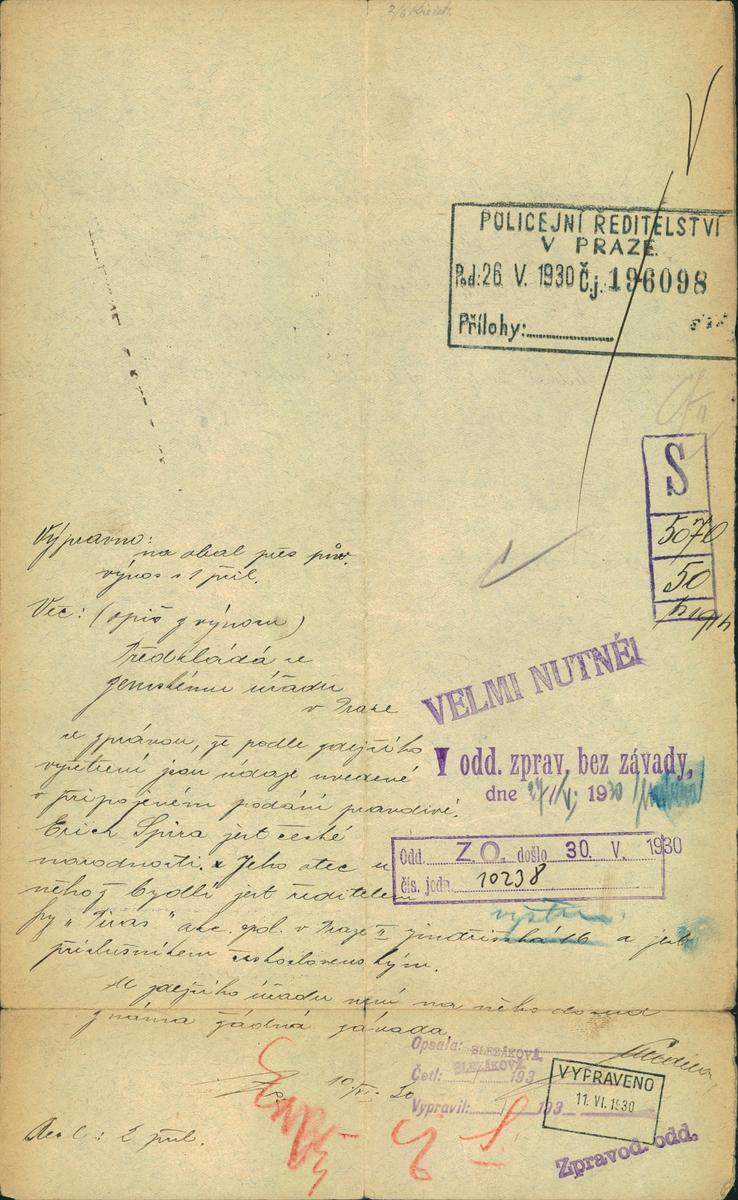 V
POLICEJNÍ ŘEDITELSTVÍ
V PRAZE.
Pod: 26. V. 1930 Č.j. 196098
Přílohy:
S
5070
50
Výpravno:
na obal přes pův.
výnos s 1 příl.
Věc: (opiš z výnosu)
Předkládá se
zemskému úřadu
v Praze
se zprávou, že podle zdejšího
vyšetření jsou údaje uvedené
v připojeném podání pravdivé.
Erich Spira jest české
národnosti. Jeho otec u
něhož bydlí jest ředitelem
fy „Piras" akc. spol. v Praze II Jindřišská 16 a jest
příslušníkem československým.
U zdejšího úřadu není na něho dosud
známa žádná závada
VELMI NUTNÉ!
V odd. zprav. bez závady,
dne 27/V. 1930
Odd. Z.O. došlo 30. V. 1930
čís. jedn. 10238
Opsala: SLEZÁKOVÁ
Četl: SLEZÁKOVÁ 193
Vypravil: 193
VYPRAVENO
11. VI. 1930
Zpravod. odd.
2 příl.